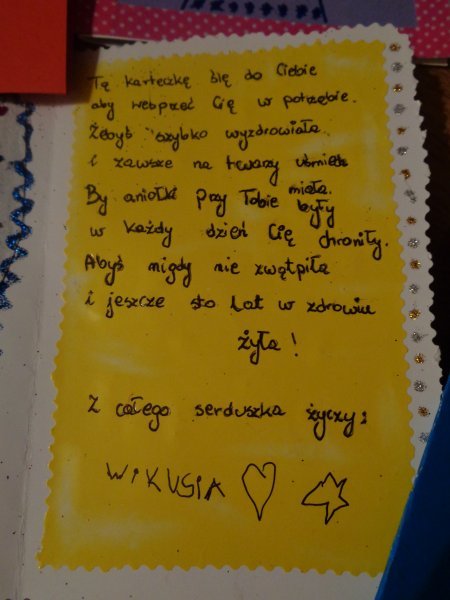 Tę karteczkę ślę do Ciebie
aby wesprzeć Cię w potrzebie.
Żebyś szybko wyzdrowiała
i zawsze na twarzy uśmiech
miała.
By aniołki przy Tobie były
w każdy dzień Cię chroniły.
Abyś nigdy nie zwątpiła
i jeszcze sto lat w zdrowiu
żyła!
Z całego serduszka życzy:
WIKUSIA